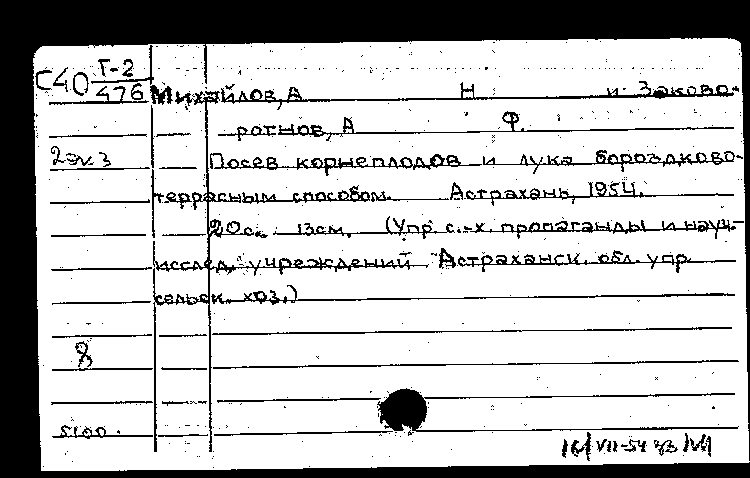 С40 Г-2
476
Михайлов, А Н и Заково-
ротнов, А Ф.
2 экз
Посев корнеплодов и лука бороздково-
террасным способом. Астрахань, 1954.
20с. 13см. (Упр. с.-х. пропаганды и науч.-
исслед. учреждений Астраханск. обл. упр.
сельск. хоз.)
8
5100.
16/VII-54